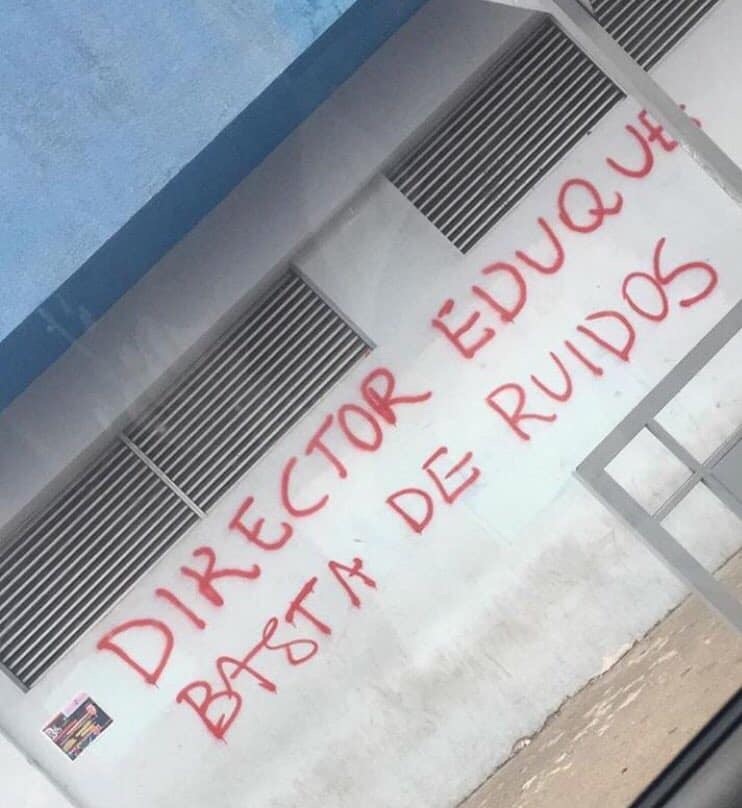 DIRECTOR EDUQUE
BASTA DE RUIDOS